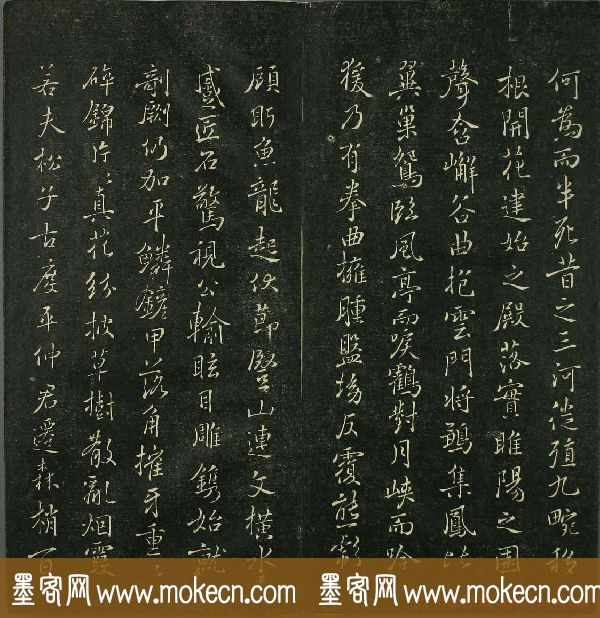 何為而半死昔之三河徙殖九畹移
根開花建始之殿落實睢陽之園
聲含嶰谷曲抱雲門將鶵集鳳比
翼巢鴛臨風亭而唳鶴對月峽而吟
猨乃有拳曲擁腫盤坳反覆熊彪
顧盻魚龍起伏節豎山連文橫水
蹙匠石驚視公輸眩目雕鐫始就
剞劂仍加平鱗鏟甲落角摧牙重〻
碎錦片〻真花紛披草樹散亂烟霞
若夫松子古度平仲君遷森梢百
墨客网 www.mokecn.com 墨客网 www.mokecn.com